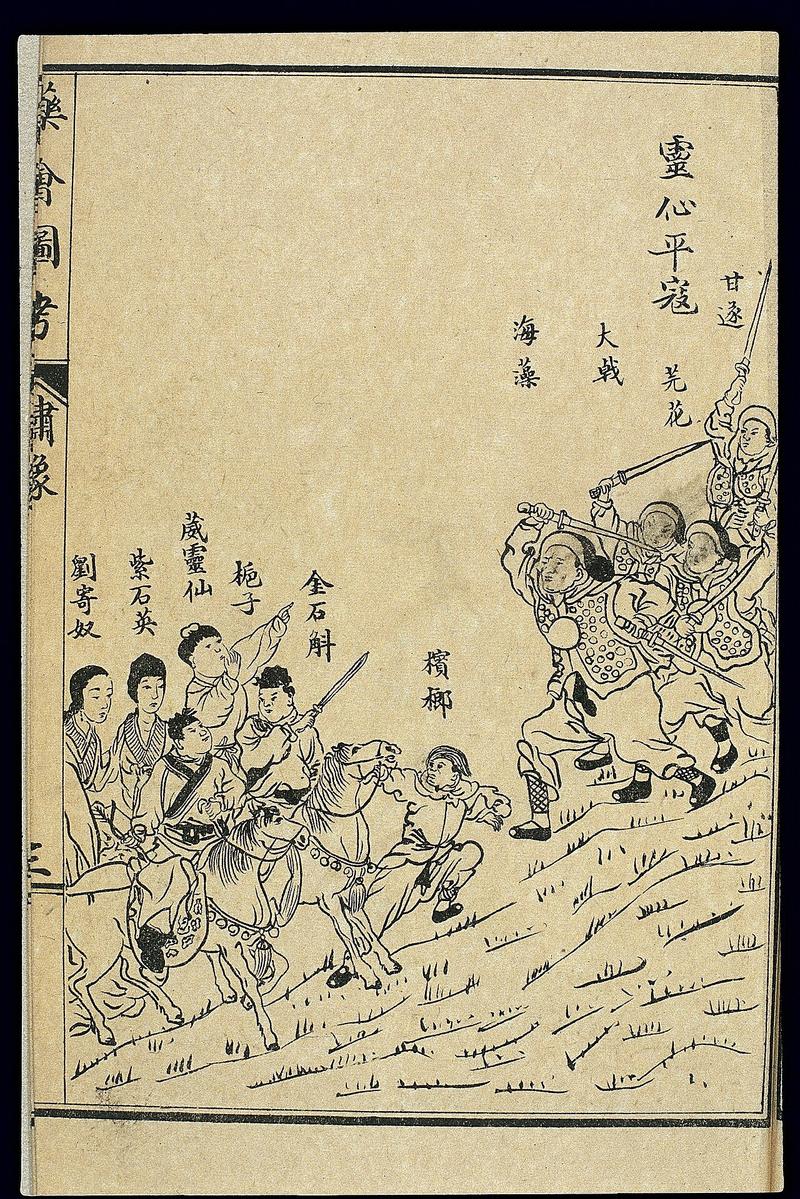 靈仙平寇
甘遂
芫花
大戟
海藻
檳榔
金石斛
梔子
葳靈仙
紫石英
劉寄奴
藥會圖考
繡像
三